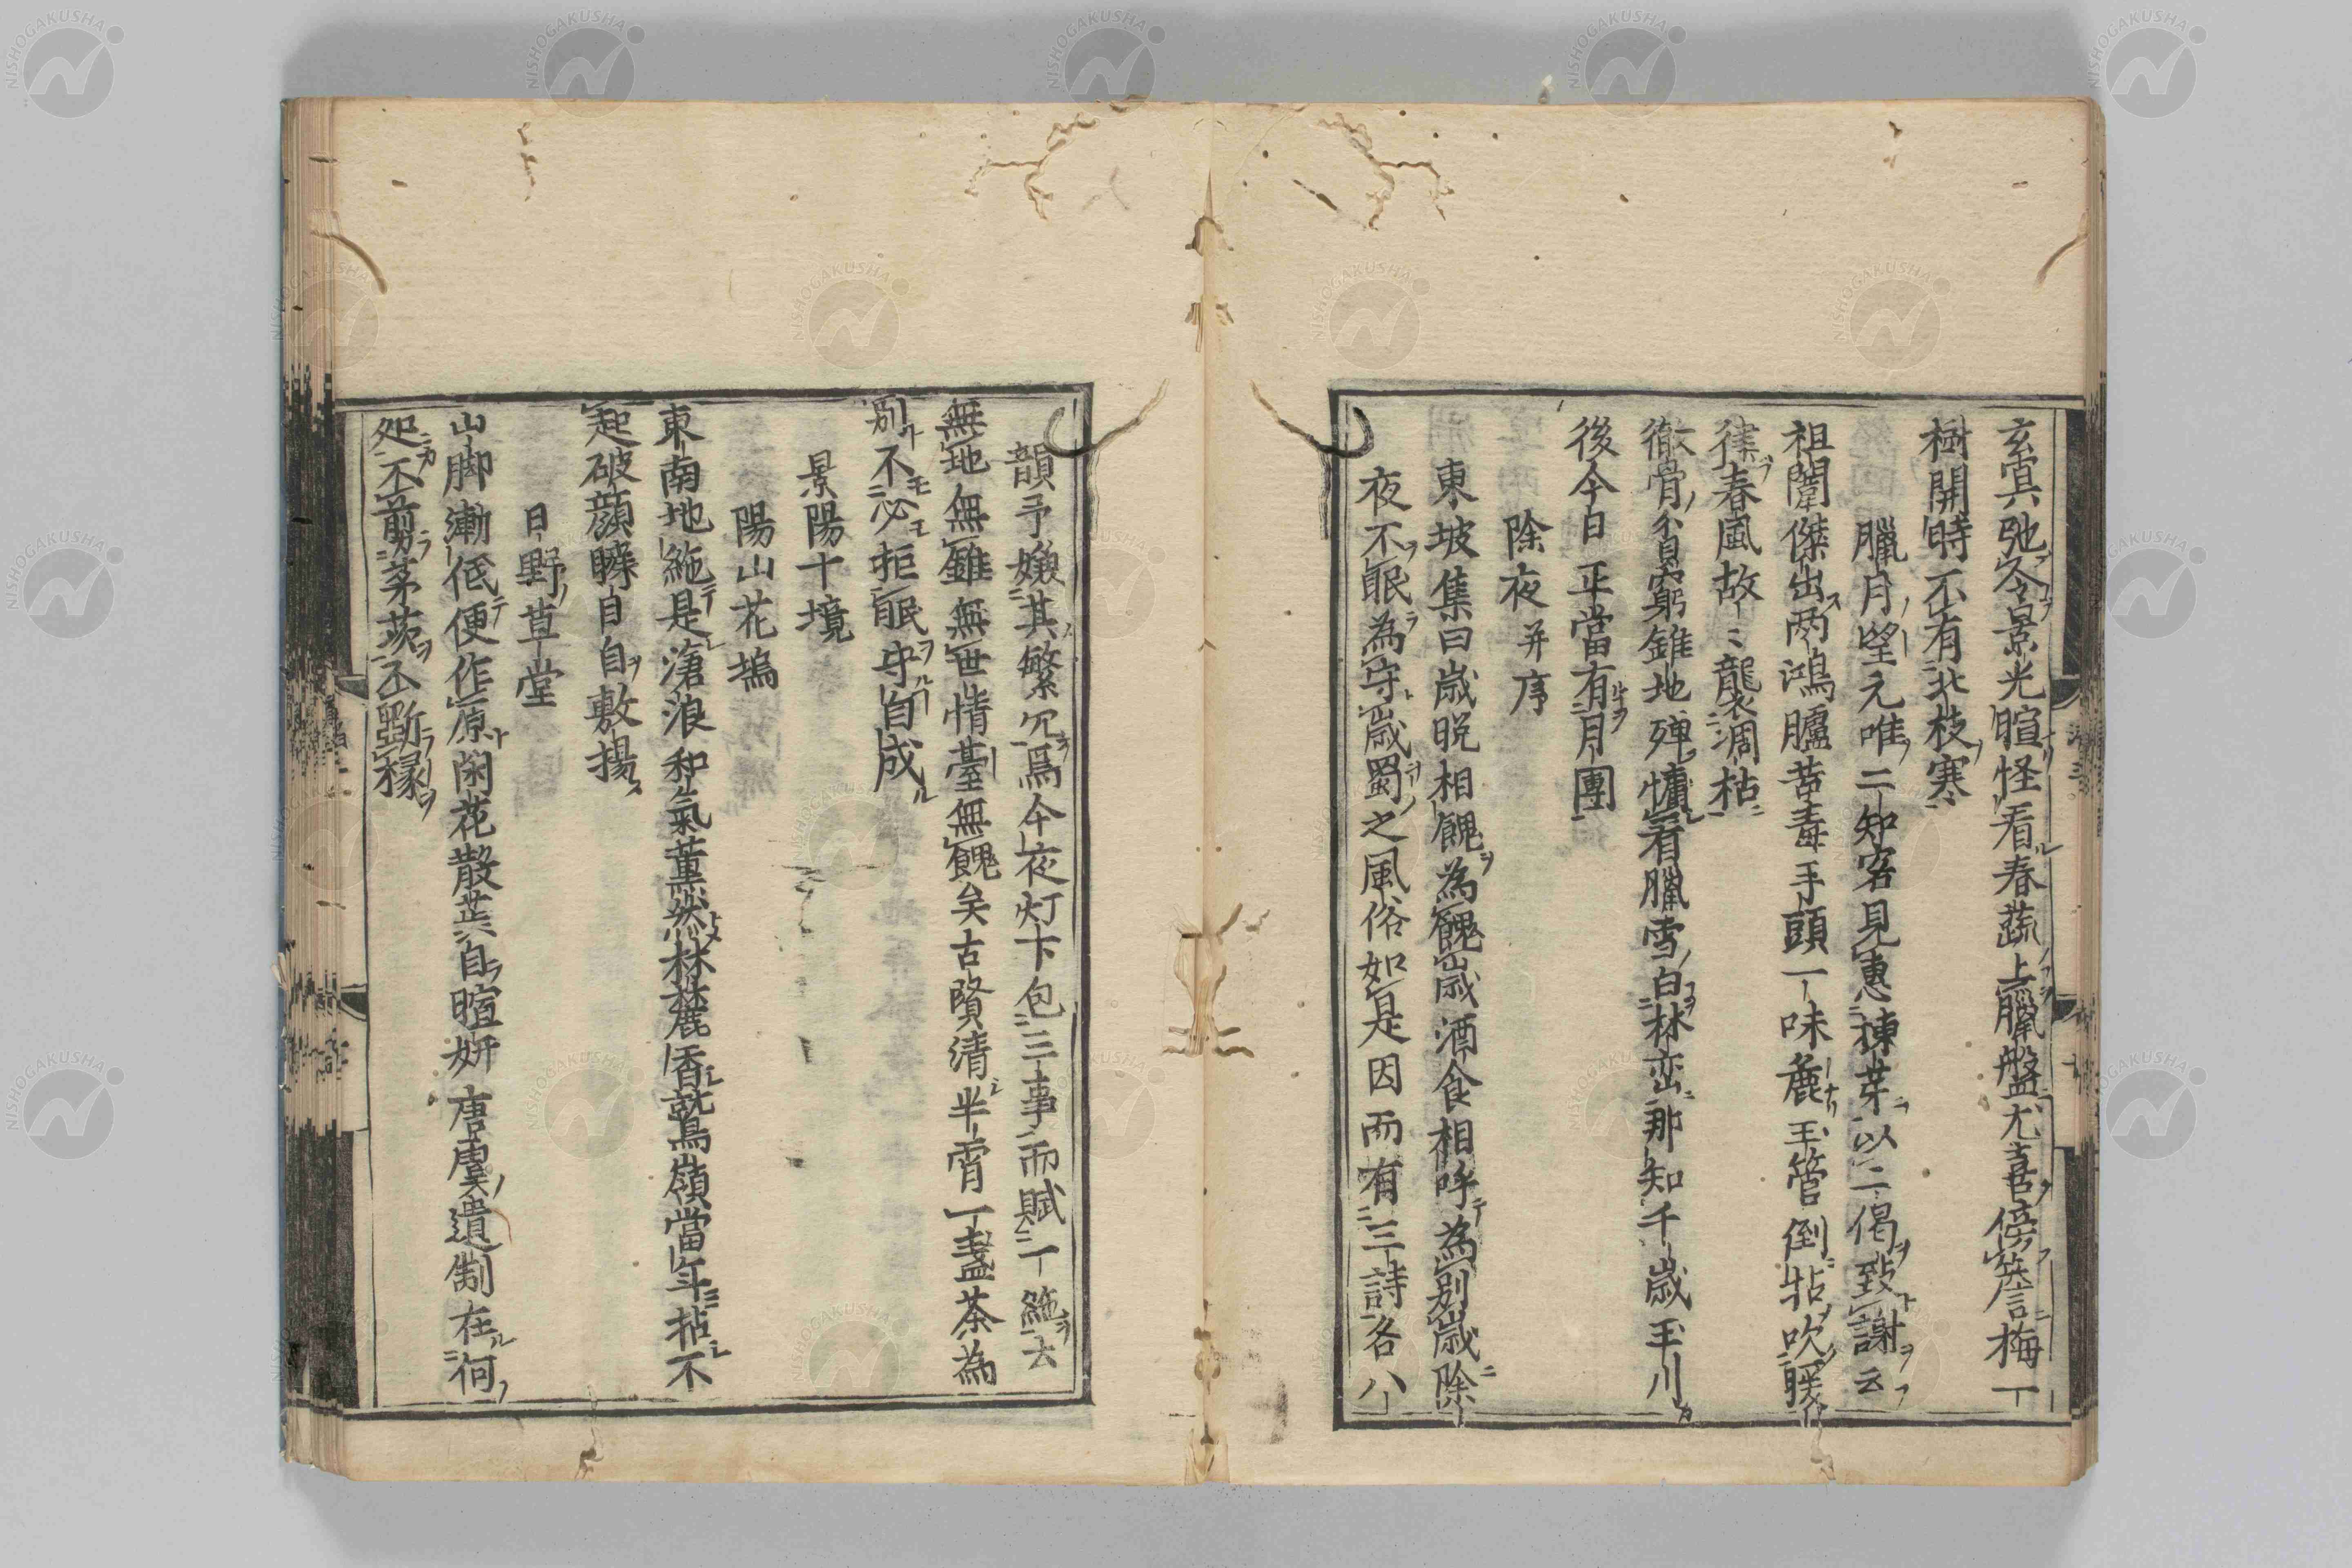 玄冥弛令景光暄怪看春蔬上臘盤尤喜傍簷梅一
樹開時不有北枝寒
臘月望元唯二知客見惠揀芽以二偈致謝云
祖闈傑出兩鴻臚苦毒手頭一味麁玉管倒拈吹暖
律春風故〻襲凋枯
徹骨貧窮錐地殫慵看臘雪白林巒那知千歲玉川
後今日正當有月團
除夜并序
東坡集曰歲晚相餽為餽歲酒食相呼為別歲除
夜不眠為守歲蜀之風俗如是因而有三詩各八
韻予嫌其繁冗爲今夜灯下包三事而賦一絁去
無地無錐無世情臺無餽矣古賢清半霄一盞茶為
別不必拒眠守自成
景陽十境
陽山花塢
東南地絁是滄浪和氣薰然林麓香鷲嶺當年拈不
起破顏曛自自敷揚
日野草堂
山脚漸低便作原閑花散蕋自暄妍唐虞遺制在何
処不剪茅茨不斲椽
NISHOGAKUSHA